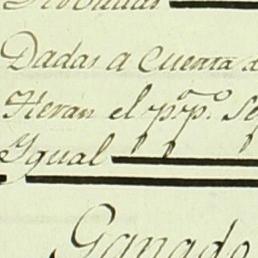 Dadas a Cuenta d
Heran el ppº. Se
Ygual
Ganado